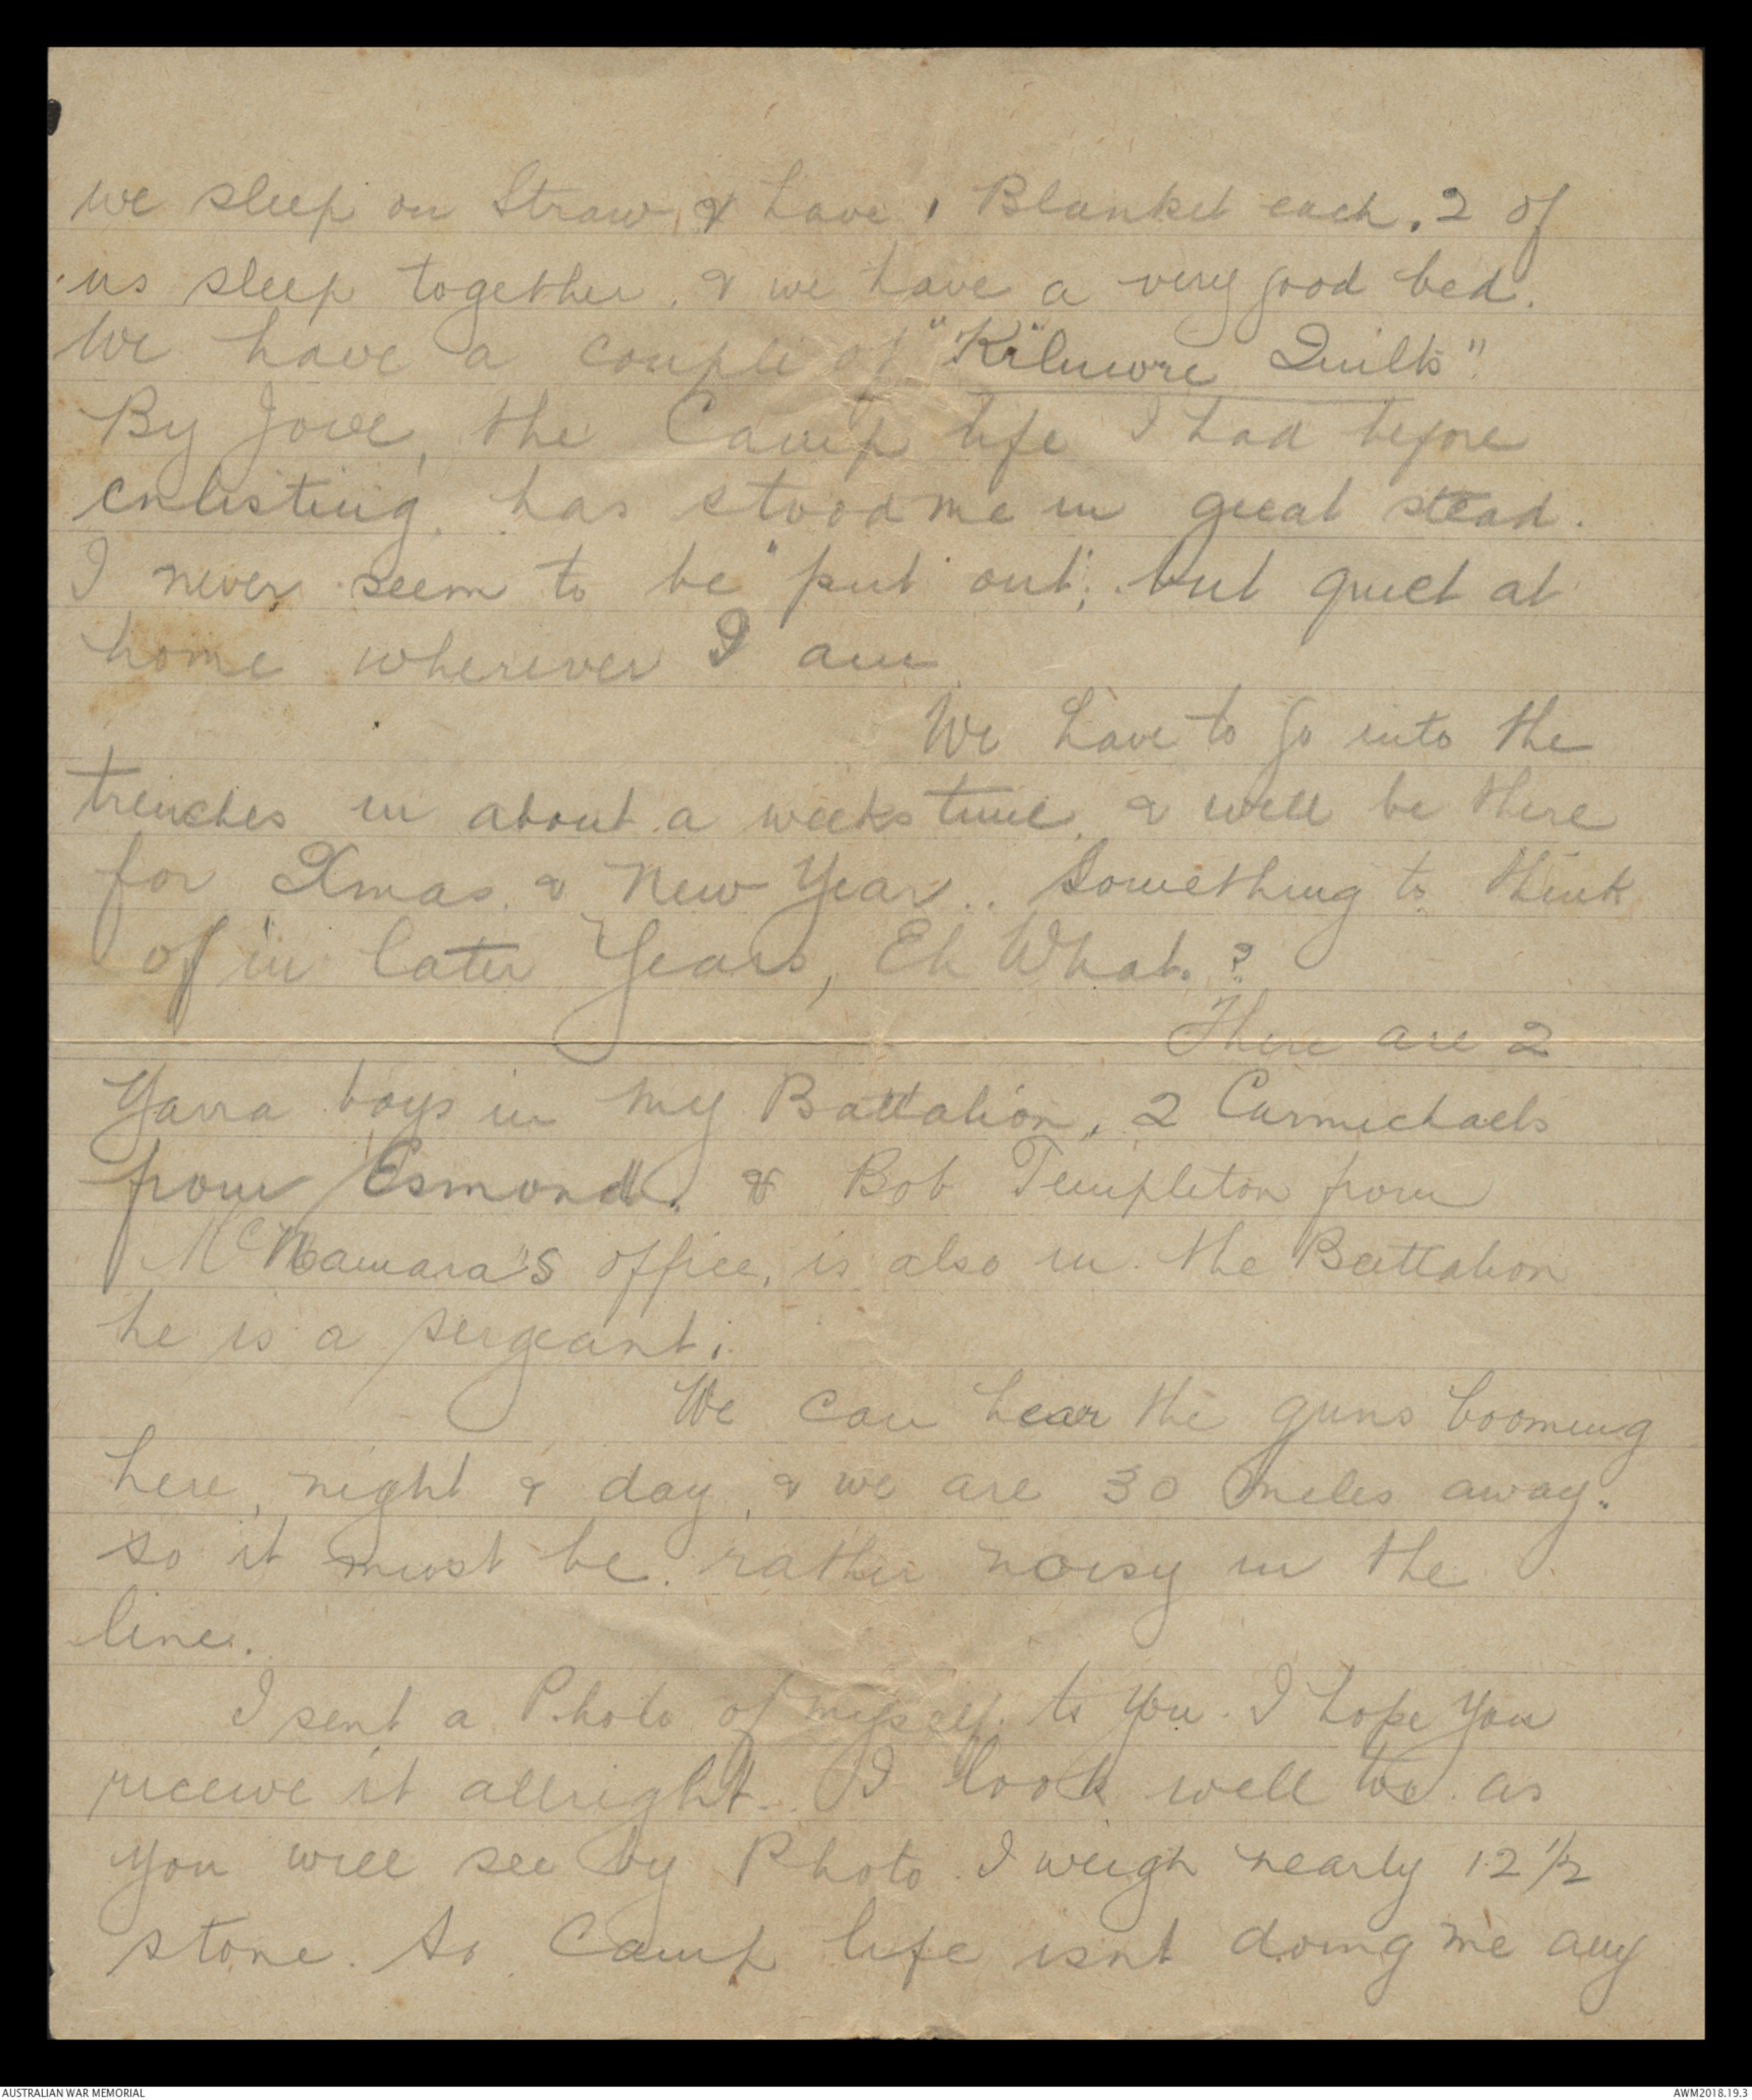 we sleep on Straw, & have 1 Blanket each. 2 of
us sleep together. & we have a very good bed.
We have a couple of "Kilmore Quilts".
By Jove, the Camp life I had before
enlisting, has stood me in great stead.
I never seem to be "put out", but quiet at
home wherever I am.
We have to go into the
trenches in about a weeks time, & will be there
for Xmas, & New Year.. Something to think
of in later Years, Eh What. ?
There are 2
Yarra boys in my Battalion, 2 Carmichaels
from Esmond. & Bob Templeton from
McNamara's office, is also in the Battalion
he is a sergeant.
We can hear the guns booming
here, night & day, & we are 30 miles away.
so it must be rather noisy in the
line.
I sent a Photo of myself to you. I hope you
receive it allright. I look well too as
you will see by Photo. I weigh nearly 12 1/2
stone. So Camp life isnt doing me any
AUSTRALIAN WAR MEMORIAL
AWM2018.19.3